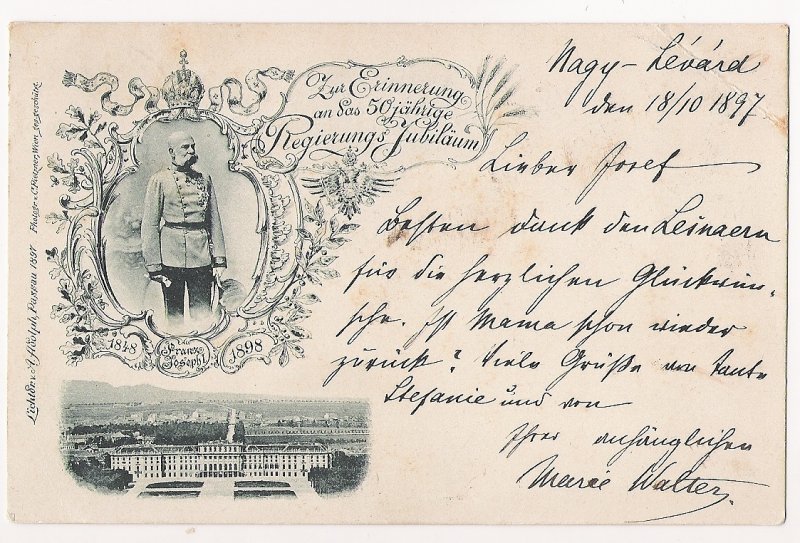 Zur Erinnerung
an das 50jährige
Regierungs Jubiläum
1848
Franz
Joseph I
1898
Lichtdr. v. Adolph, Passau 1897
Photogr. v. C. Pietzner, Wien, ges. geschützt.
Nagy-Lévárd
den 18/10 1897
Lieber Josef
Besten Dank den
für die herzlichen Glückwün-
sche. Ist Mama schon wieder
zurück? Viele Grüße von Tante
Stefanie und von
Ihrer anhänglichen
Marie Walter.